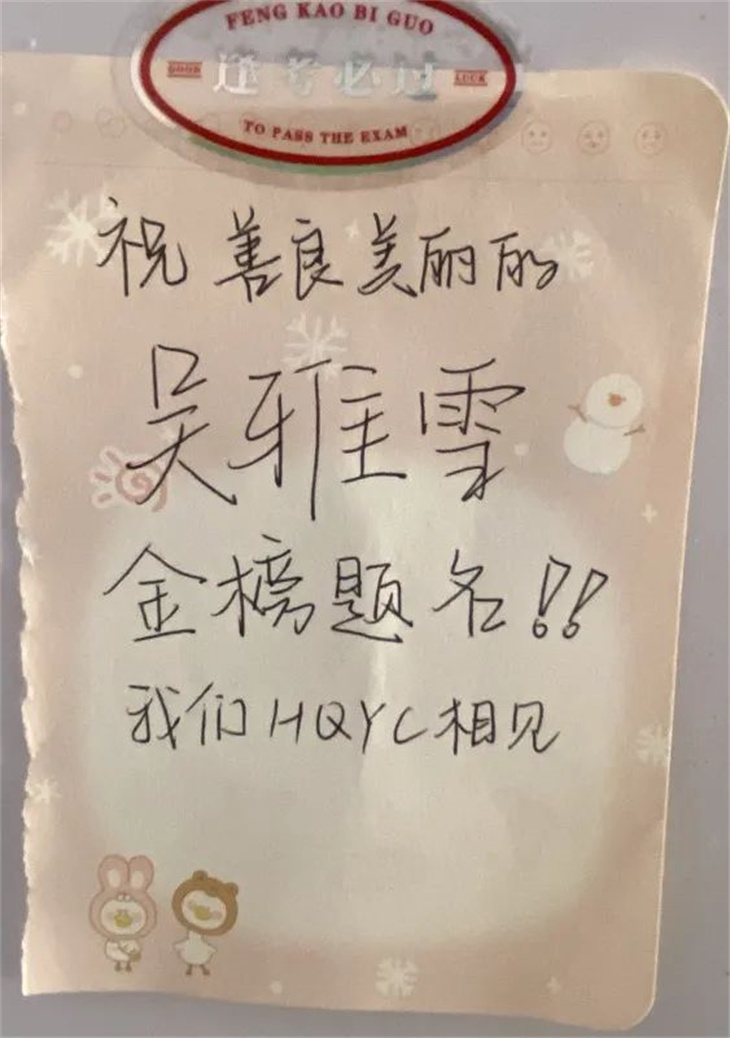 FENG KAO BI GUO
GOOD 逢考必过 LUCK
TO PASS THE EXAM
祝善良美丽的
吴雅雪
金榜题名!!
我们HQYC相见